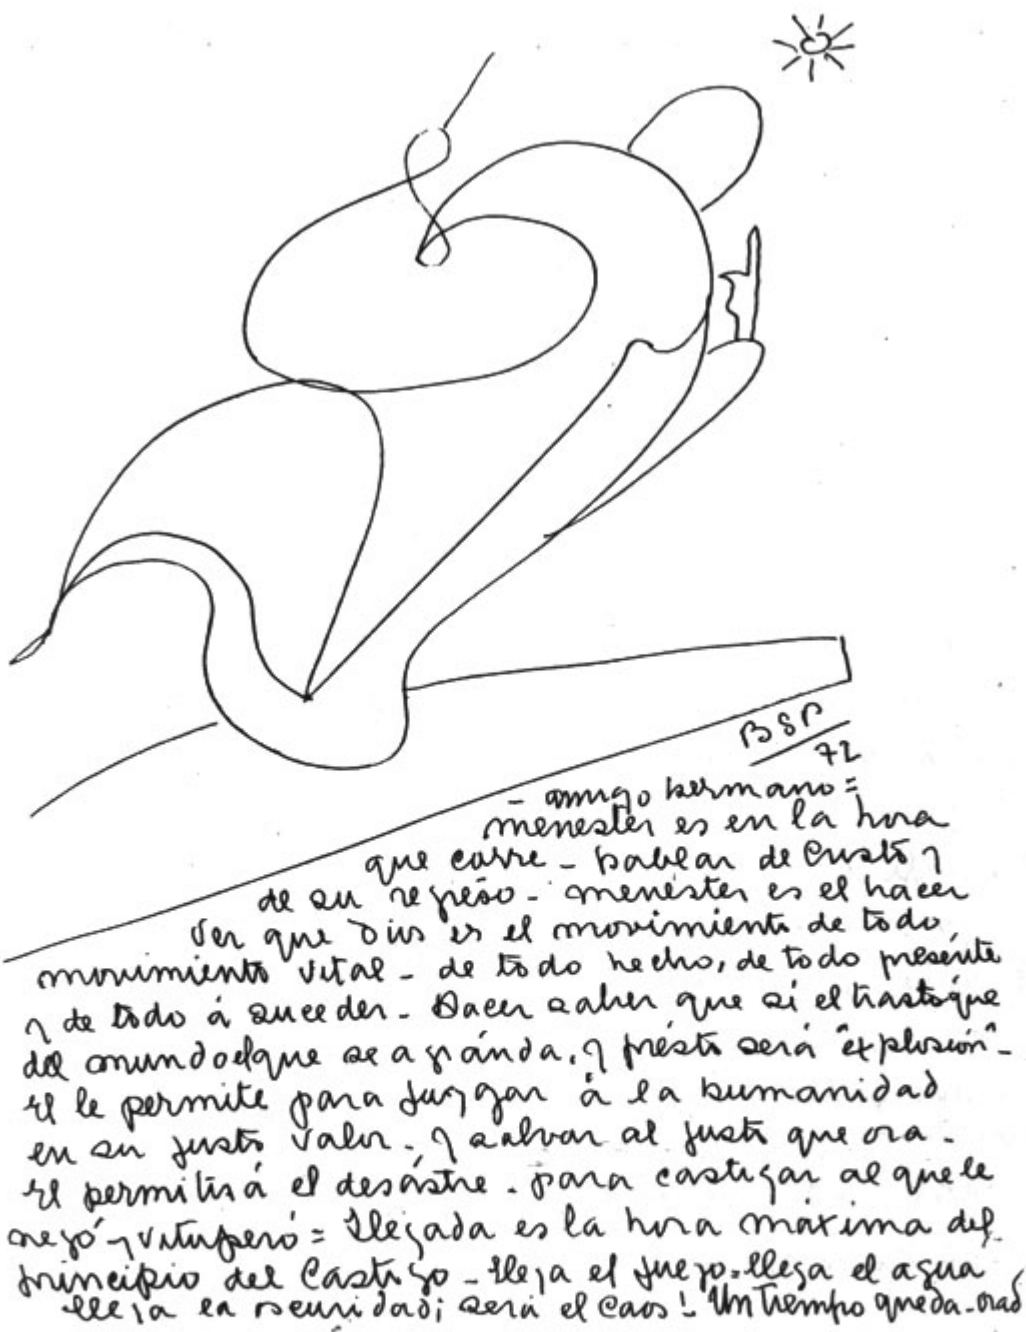 BSP
72
- amigo hermano =
menester es en la hora
que corre - hablar de Cristo y
de su regreso - menester es el hacer
ver que Dios es el movimiento de todo,
movimiento vital - de todo hecho, de todo presente
y de todo á suceder - Hacer saber que si el trastoque
del mundo el que se agranda, y présto será "explosión" -
El le permite para juzgar á la humanidad
en su justo valor - y salvar al justo que ora -
El permitirá el desástre - para castigar al que le
negó y vituperó = llegada es la hora máxima del
principio del Castigo - llega el fuego - llega el agua
llega la oscuridad; será el caos! Un tiempo queda - orad